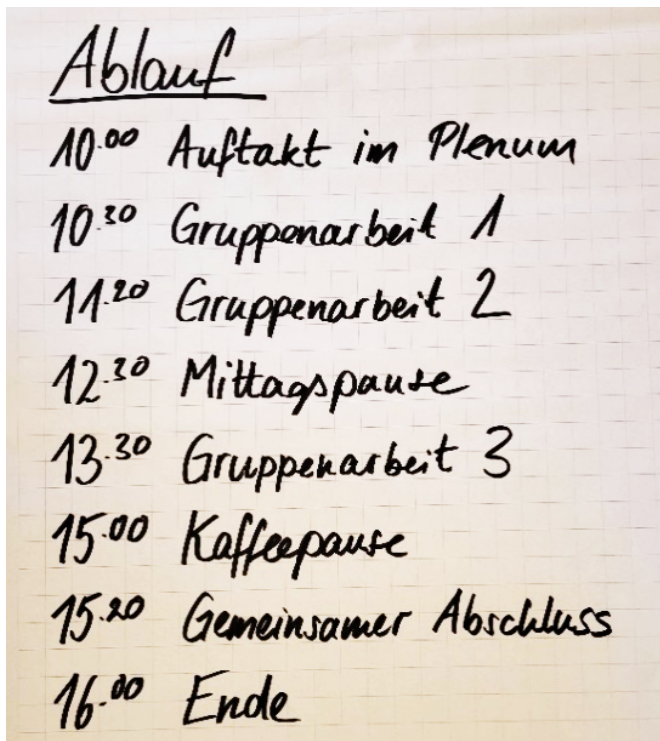 Ablauf
10.00 Auftakt im Plenum
10.30 Gruppenarbeit 1
11.20 Gruppenarbeit 2
12.30 Mittagspause
13.30 Gruppenarbeit 3
15.00 Kaffeepause
15.20 Gemeinsamer Abschluss
16.00 Ende